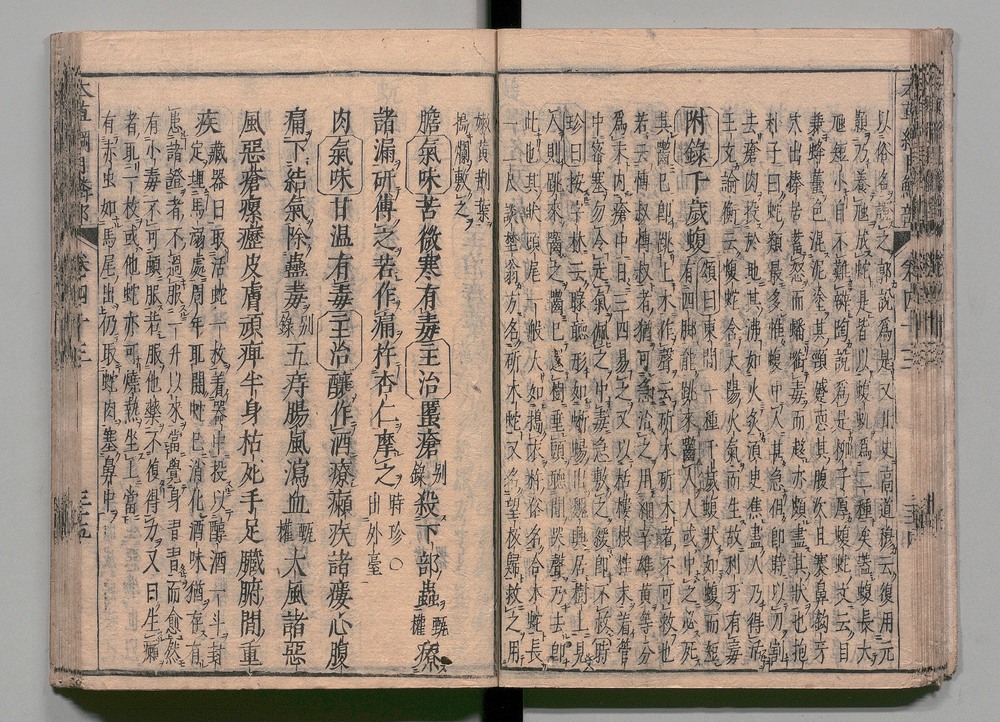 以俗名證之郭說為是又北史高道穆云復用元
顥乃養虺成蛇是皆以蝮虺為二種矣蓋蝮長大
虺短小自不難辨陶說為是柳子厚蝮蛇文云目
兼蜂蠆色混泥塗其頸蹙恧其腹次且褰鼻鈎牙
穴出榛居蓄怒而蟠銜毒而趍亦頗盡其狀也抱
朴子曰蛇類最多惟蝮中人甚急但即時以刀割
去瘡肉投於地其沸如火炙須臾焦盡人乃得活
王充論衡云蝮蛇含太陽火氣而生故利牙有毒
附錄千歲蝮頌曰東間一種千歲蝮狀如蝮而短
有四脚能跳來齧人人或中之必死
其齧已即跳上木作聲云斫木斫木者不可救也
若云博叔博叔者猶可急治之用細辛雄黃等分
為末内瘡中日三四易之又以栝樓根桂末着管
中密塞勿令走氣佩之中毒急敷之緩即不救時
珍曰按字林云聽形如蜥蜴出魏興居樹上見
人則跳來齧之齧已還樹垂頭聽聞哭聲乃去即
此也其狀頭尾一般大如搗衣杵俗名合木蛇長
一二尺談埜翁方名斫木蛇又名望板歸救之用
嫩黃荊葉
搗爛敷之
膽氣味苦微寒有毒主治䘌瘡別錄殺下部蟲甄權療
諸漏研傅之若作痛杵杏仁摩之時珍○出外臺
肉氣味甘温有毒主治釀作酒療癩疾諸瘻心腹
痛下結氣除蠱毒別錄五痔腸風瀉血甄權大風諸惡
風惡瘡瘰癧皮膚頑痺半身枯死手足臟腑間重
疾藏器曰取活蛇一枚着器中投以醇酒一斗封
定埋馬溺處周年取開蛇已消化酒味猶存有
患諸證者不過服一升以來當覺身習習而愈然
有小毒不可頓服若服他藥不復得力又曰生癩
者取一枚或他蛇亦可燒熱坐上當
有赤虫如馬尾出仍取蛇肉塞鼻中
本草綱目鱗部
卷四十三
三十五